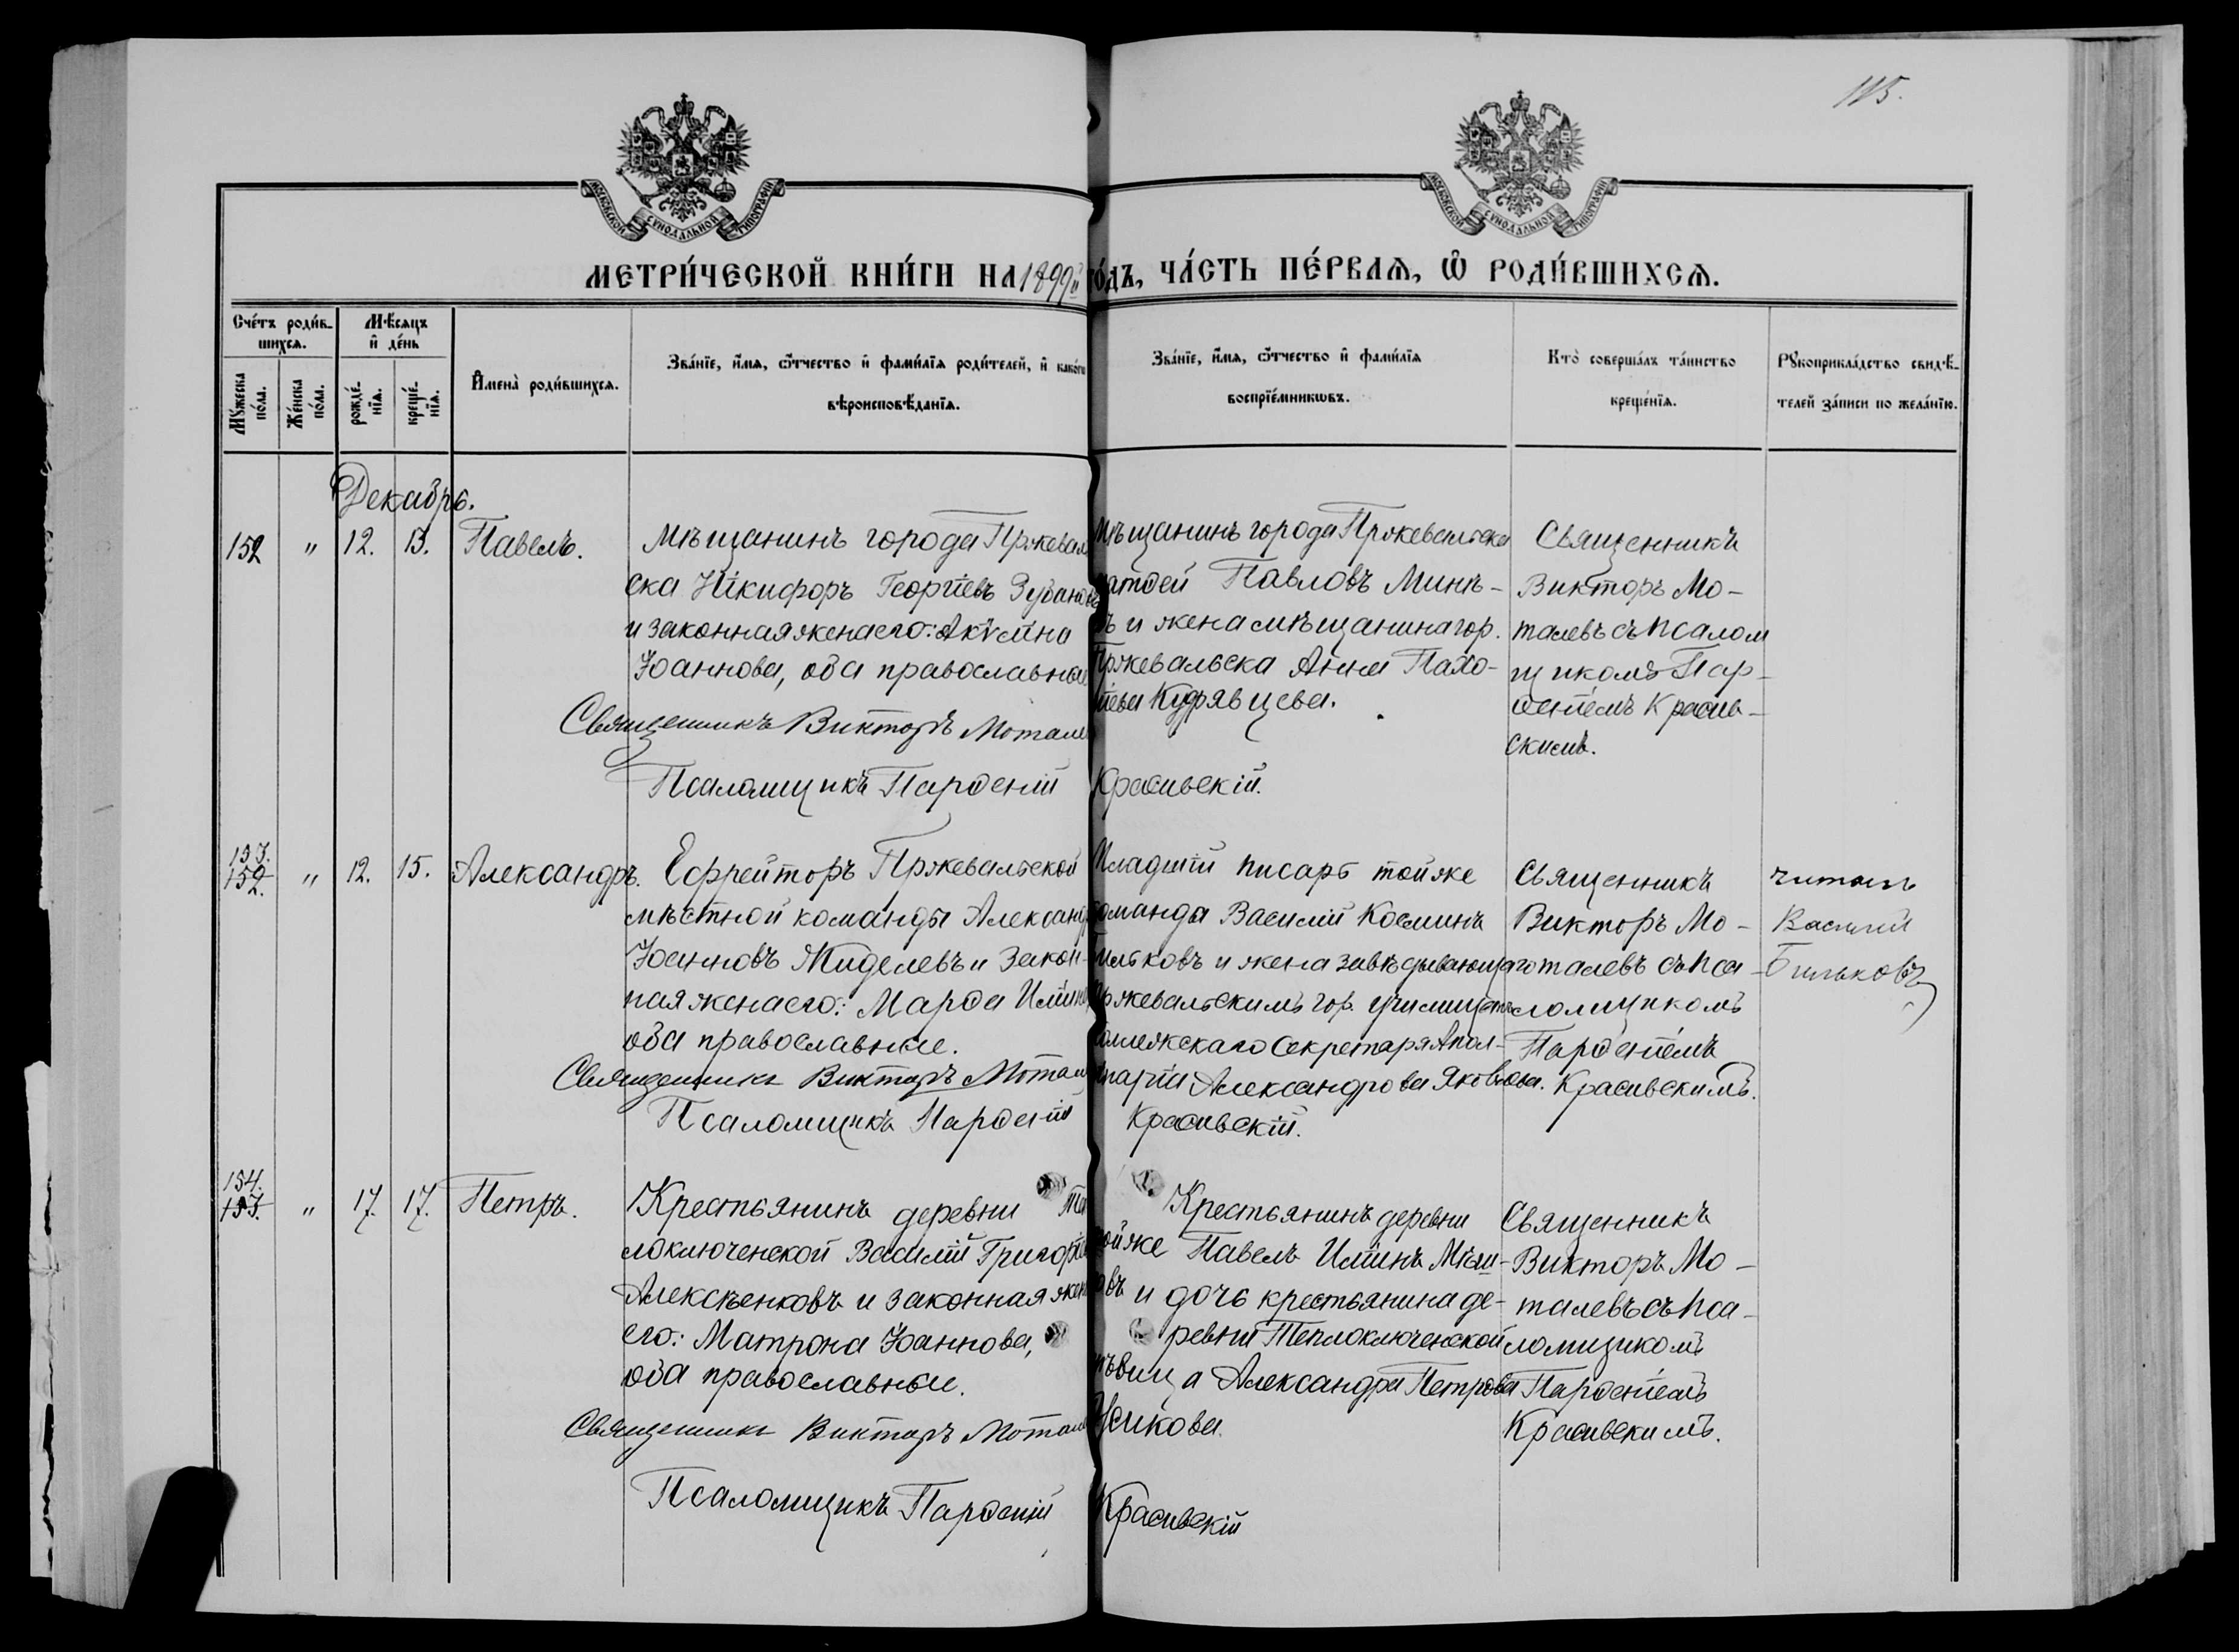 115.
МОСКОВСКОЙ СУНОДАЛЬНОЙ ТИПОГРАФІИ
МОСКОВСКОЙ СУНОДАЛЬНОЙ ТИПОГРАФІИ
МЕТРИ́ЧЕСКОЙ КНИ́ГИ НА 1899й го́дъ, ЧА́СТЬ ПЕ́РВАѦ, Ѡ҆ РОДИ́ВШИХСѦ.
Сче́тъ роди́в-
шихсѧ.
Мꙋжеска
по́ла.
Же́нска
по́ла.
Мѣ́сѧцъ
и҆ де́нь
рожде́-
нїѧ.
креще́-
нїѧ.
И҆мена̀ роди́вшихсѧ.
Зва́нїе, и҆́мѧ, ѻ҆́тчество и҆ фами́лїѧ роди́телей, и҆ како́гѡ
вѣроисповѣ́данїѧ.
Зва́нїе, и҆́мѧ, ѻ҆́тчество и҆ фами́лїѧ
воспрїе́мникѡвъ.
Кто̀ соверша́лъ та́инство
креще́нїѧ.
Рꙋкоприкла́дство свидѣ́-
телей за́писи по жела́нїю.
Декабрь.
152 " 12. 13. Павелъ.
Мѣщанинъ города Пржеваль
ска Никифоръ Георгіевъ Зубановъ
и законная жена его: Акѵлина
Іоаннова, оба православные
Священникъ Викторъ Моталевъ
Псаломщикъ Парѳеній Красивскій.
Мѣщанинъ города Пржевальска
Матѳей Павловъ Минъ-
въ и жена мѣщанина гор.
Пржевальска Анна Пахо-
міева Кудрявцева.
Священникъ
Викторъ Мо-
талевъ съ псалом
щикомъ Пар-
ѳеніемъ Красив-
скимъ.
153.
152. " 12. 15. Александръ.
Ефрейторъ Пржевальской
мѣстной команды Александръ
Іоанновъ Жиделевъ и закон-
ная жена его: Марѳа Илiина
оба православные.
Священникъ Викторъ Моталевъ
Псаломщикъ Парѳеній Красивскій.
Младшій писарь той же
команды Василій Косминъ
Бильковъ и жена завѣдывающаго
Пржевальскимъ гор. училищемъ
коллежскаго секретаря Апол-
линарія Александрова Яковлева.
Священникъ
Викторъ Мо-
талевъ съ пса-
ломщикомъ
Парѳеніемъ
Красивскимъ.
читалъ
Василій
Бильковъ
154.
153. " 17. 17. Петръ.
Крестьянинъ деревни Теп
лоключенской Василій Григорьевъ
Алексѣенковъ и законная жена
его: Матрона Іоаннова,
оба православные.
Священникъ Викторъ Моталевъ
Псаломщикъ Парѳеній Красивскій
Крестьянинъ деревни
той же Павелъ Илiинъ Мѣш-
овъ и дочь крестьянина де-
ревни Теплоключенской
дѣвица Александра Петрова
Усикова.
Священникъ
Викторъ Мо-
талевъ съ пса-
ломщикомъ
Парѳеніемъ
Красивскимъ.